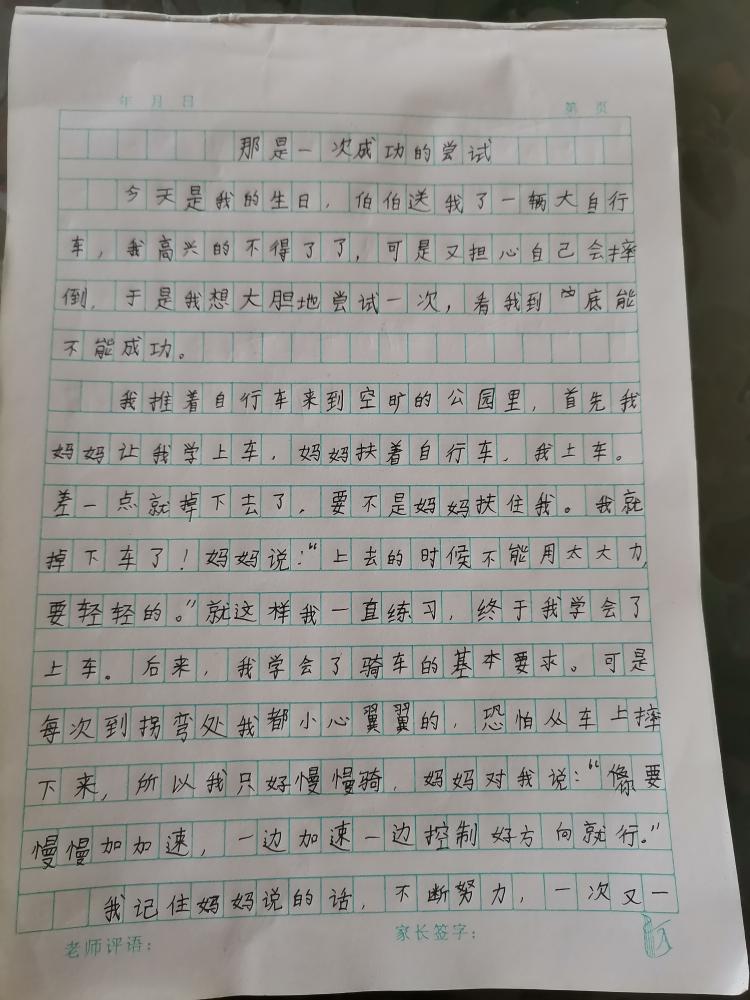 年 月 日
第 页
那是一次成功的尝试
今天是我的生日，伯伯送我了一辆大自行
车，我高兴的不得了了，可是又担心自己会摔
倒，于是我想大胆地尝试一次，看我到底能
不能成功。
我推着自行车来到空旷的公园里，首先我
妈妈让我学上车，妈妈扶着自行车，我上车。
差一点就掉下去了，要不是妈妈扶住我。我就
掉下车了！妈妈说：“上去的时候不能用太大力，
要轻轻的。”就这样我一直练习，终于我学会了
上车。后来，我学会了骑车的基本要求。可是
每次到拐弯处我都小心翼翼的，恐怕从车上摔
下来，所以我只好慢慢骑，妈妈对我说：“要
慢慢加加速，一边加速一边控制好方向就行。”
我记住妈妈说的话，不断努力，一次又一
老师评语：
家长签字：